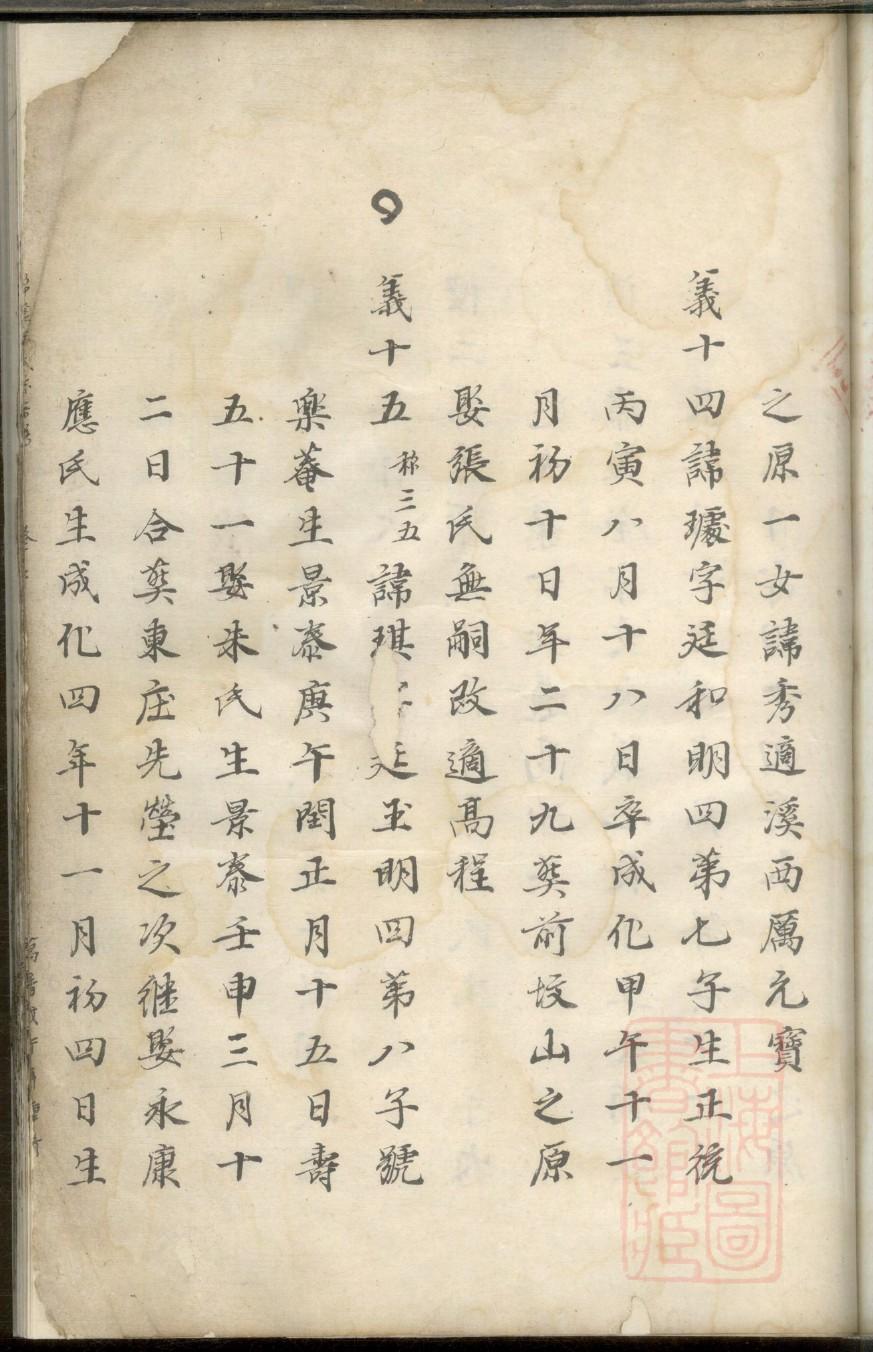 之原一女諱秀適溪西厲元寶
義十四諱璩字廷和明四第七子生正統
丙寅八月十八日卒成化甲午十一
月初十日年二十九葬前坟山之原
娶張氏無嗣改適髙程
義十五 称三五 諱琪廷玉明四第八子號
樂菴生景泰庚午閏正月十五日壽
五十一娶朱氏生景泰壬申三月十
二日合葬東庄先塋之次継娶永康
應氏生成化四年十一月初四日生
上海圖書館藏